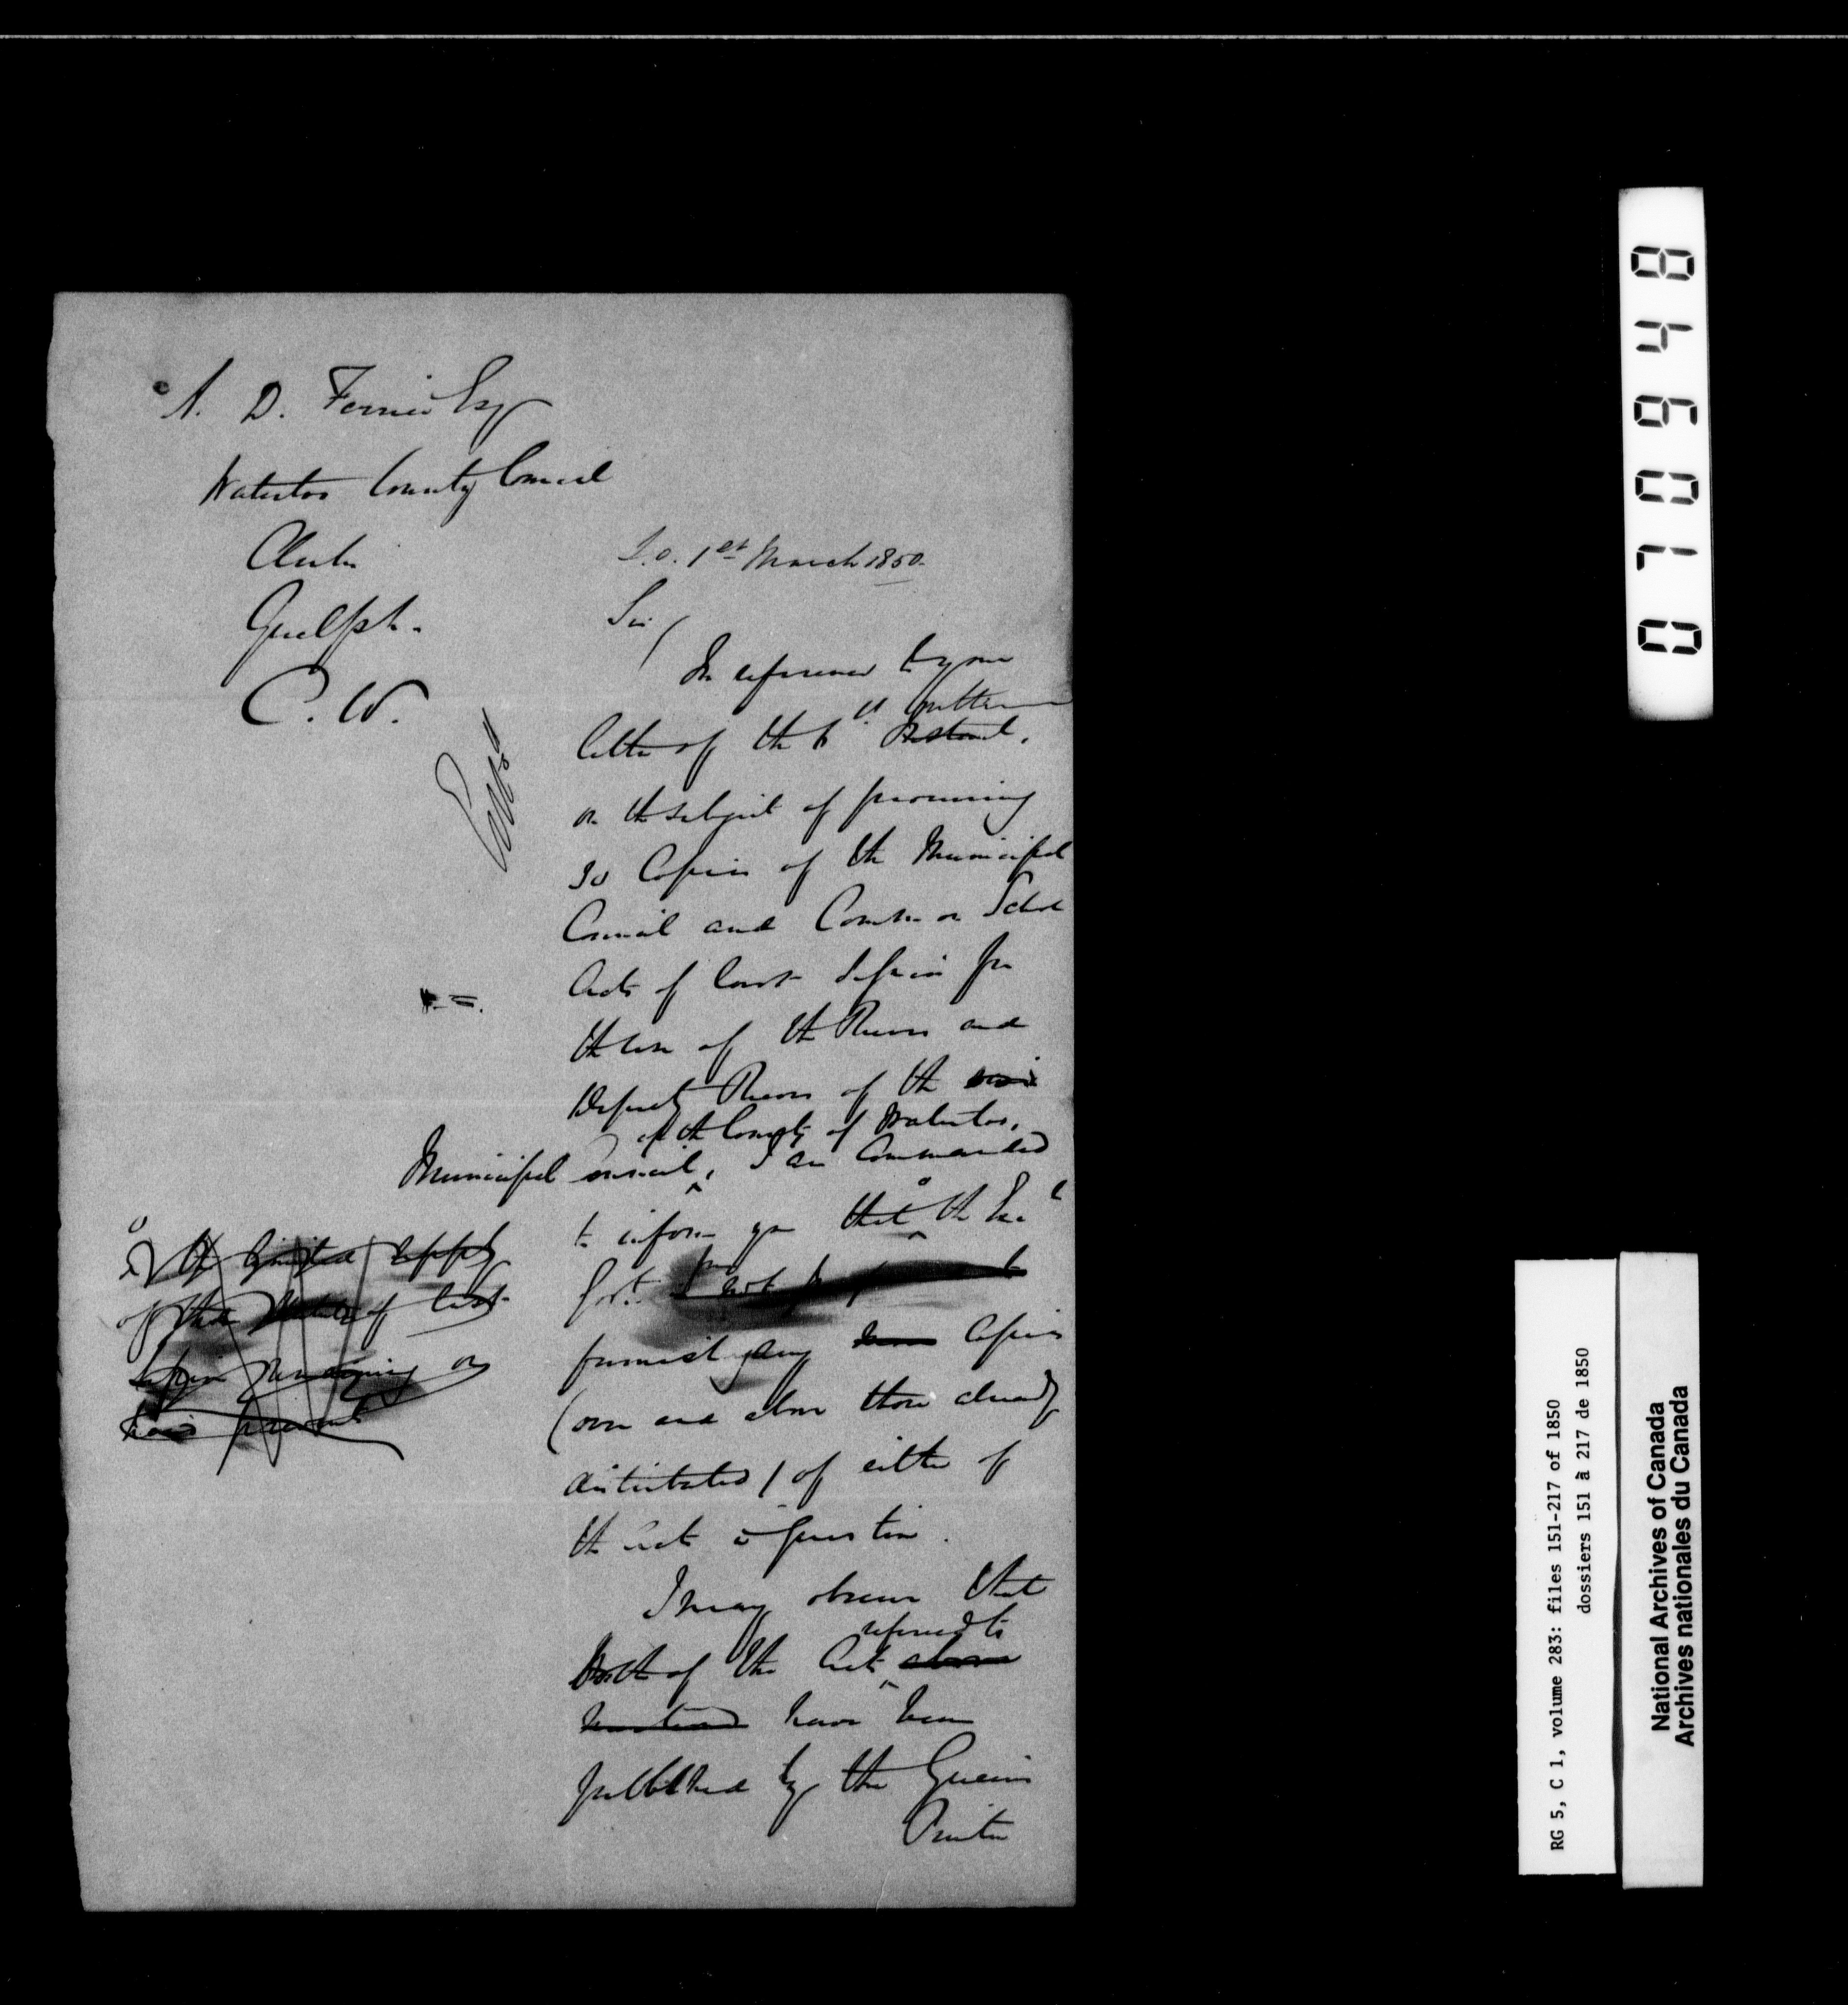 A. D. Ferrier Esq
Waterloo County Council
Clerk
Guelph.
C. W.
S.O. 1st March 1850.
Sir/
In reference to your
letter of the ultimo
Instant,
on the subject of procuring
30 Copies of the Municipal
Council and Common School
Acts of last Session for
the use of the Reeves and
Deputy Reeves of the
of the County of Waterloo,
Municipal Council, I am Commanded
to inform you that the
furnish any more Copies
(over and above those already
distributed) of either of
the Acts in question.
of the limited supply
of the of last
Session remaining on
I may observe that
referred to
both of the Acts above
mentioned have been
published by the Queen's
Printer
070948
RG 5, C 1, volume 283: files 151-217 of 1850
dossiers 151 à 217 de 1850
National Archives of Canada
Archives nationales du Canada